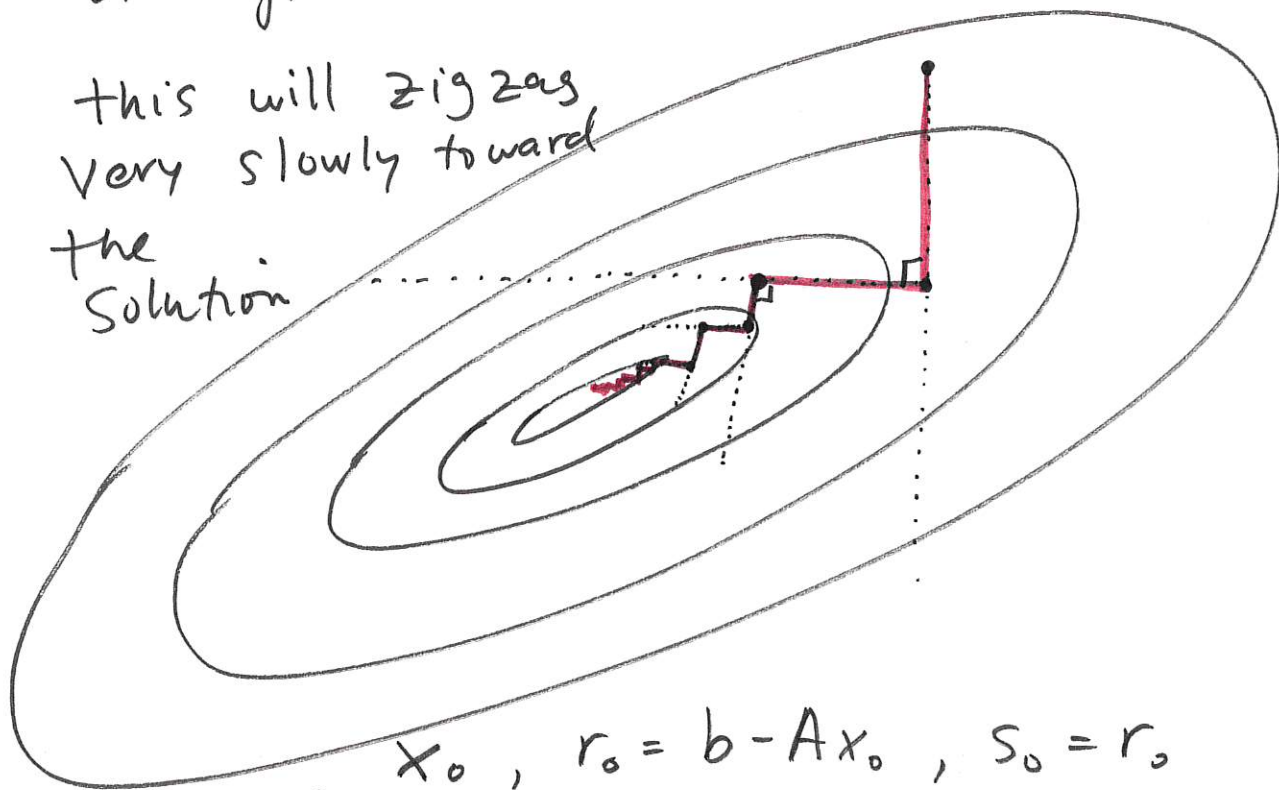 this will zigzag
very slowly toward
the
solution
x₀ , r₀ = b - Ax₀ , s₀ = r₀